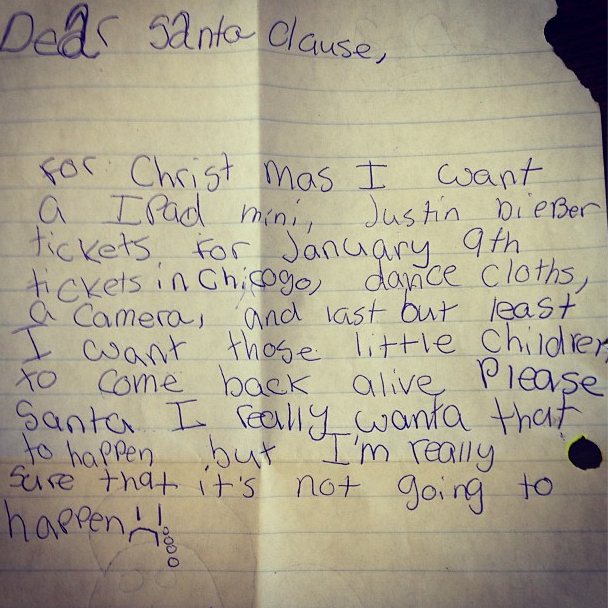 Dear Santa Clause,
For Christ mas I want
a IPad mini, Justin bieBer
tickets for January 9th
tickets in Chicogo, dance cloths,
a camera, and last but least
I want those little children
to come back alive Please
Santa I really wanta that
to happen but I'm really
sure that it's not going to
happen